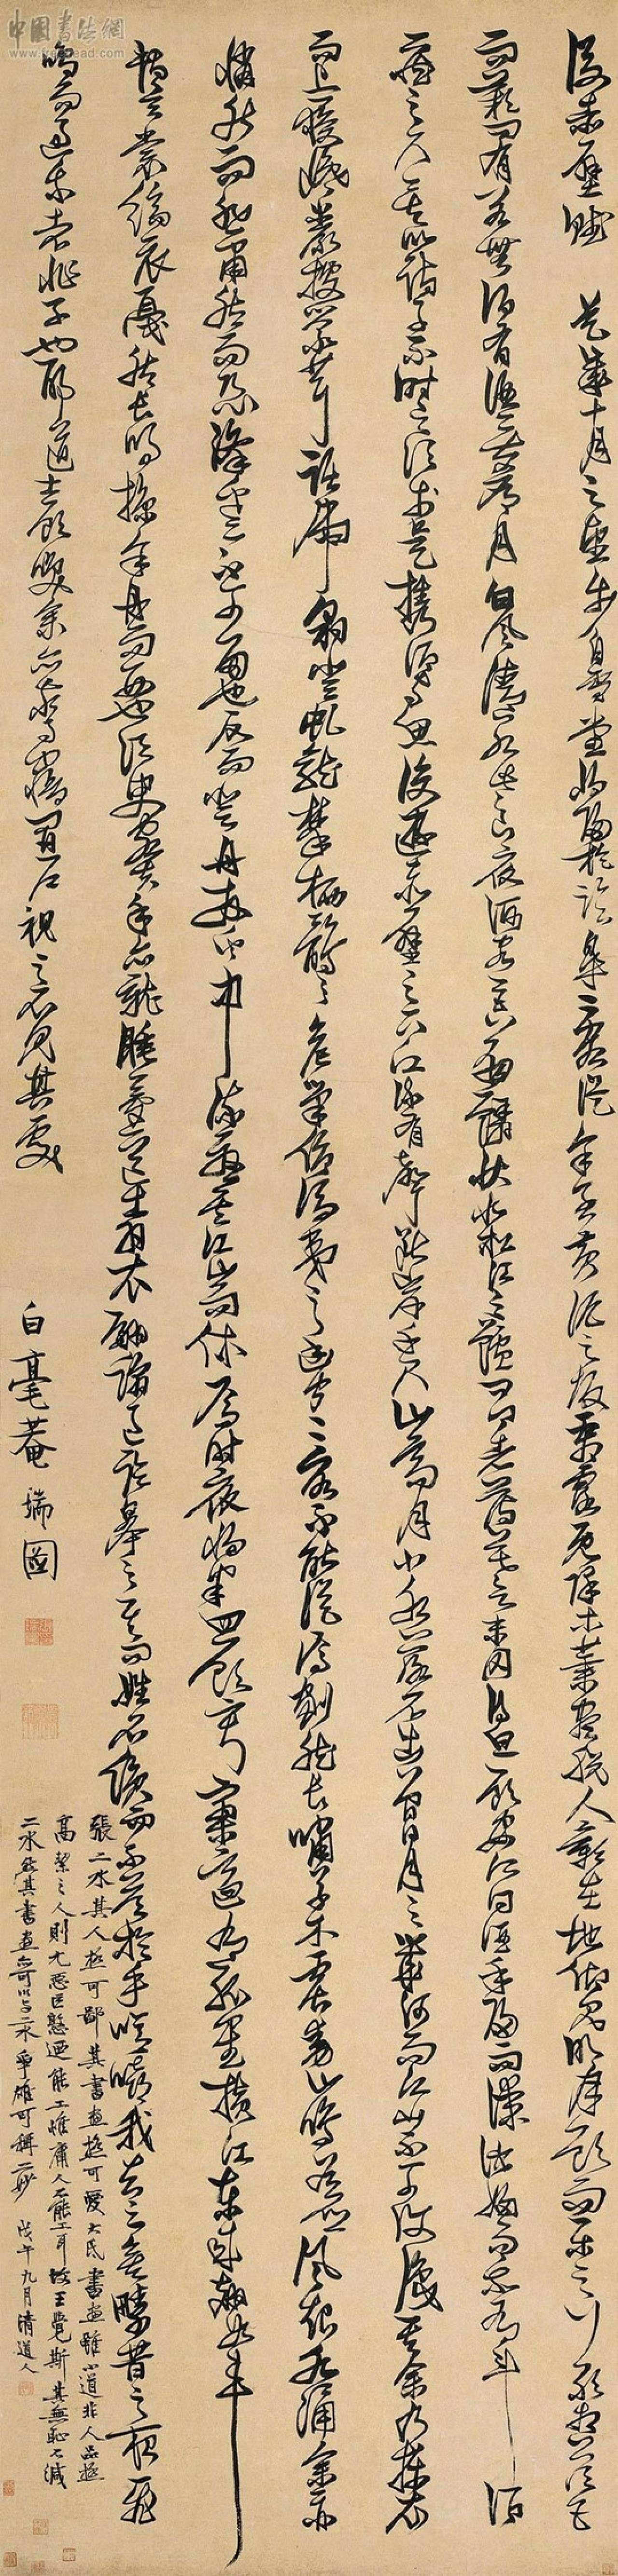 中國書法網
www.freehead.com
後赤壁賦 是歲十月之望步自雪堂將歸於臨皋二客從余過黃泥之坂霜露既降木葉盡脫人影在地仰見明月顧而樂之行歌相答已
而歎曰有客無酒有酒無肴月白風清如此良夜何客曰今者薄暮舉網得魚巨口細鱗狀似松江之鱸顧安所得酒乎歸而謀諸婦婦曰我有斗酒
藏之久矣以待子不時之須於是攜酒與魚復遊赤壁之下江流有聲斷岸千尺山高月小水落石出曾日月之幾何而江山不可復識矣余乃攝衣
而上履巉巖披蒙茸踞虎豹登虬龍攀栖鶻之危巢俯馮夷之幽宮二客不能從焉劃然長嘯草木震動山鳴谷應風起水涌余亦
悄然而悲肅然而恐凜乎其不可留也反而登舟放乎中流聽其所止而休焉時夜將半四顧寂寥適有孤鶴橫江東來翅如車
輪玄裳縞衣戛然長鳴掠余舟而西也須臾客去余亦就睡夢一道士羽衣翩躚過臨皋之下問其姓名俛而不答嗚呼噫嘻我知之矣疇昔之夜飛
鳴而過我者非子也耶道士顧笑余亦驚寤開戶視之不見其處
白毫菴瑞圖
張二水其人極可鄙其書畫極可愛大氐書畫雖小道非人品極
高潔之人則尤惡巨憝迺能工惟庸人不能工耳王覺斯其無恥不減
二水然其書畫亦可與二水爭雄可稱二妙 戊午九月清道人